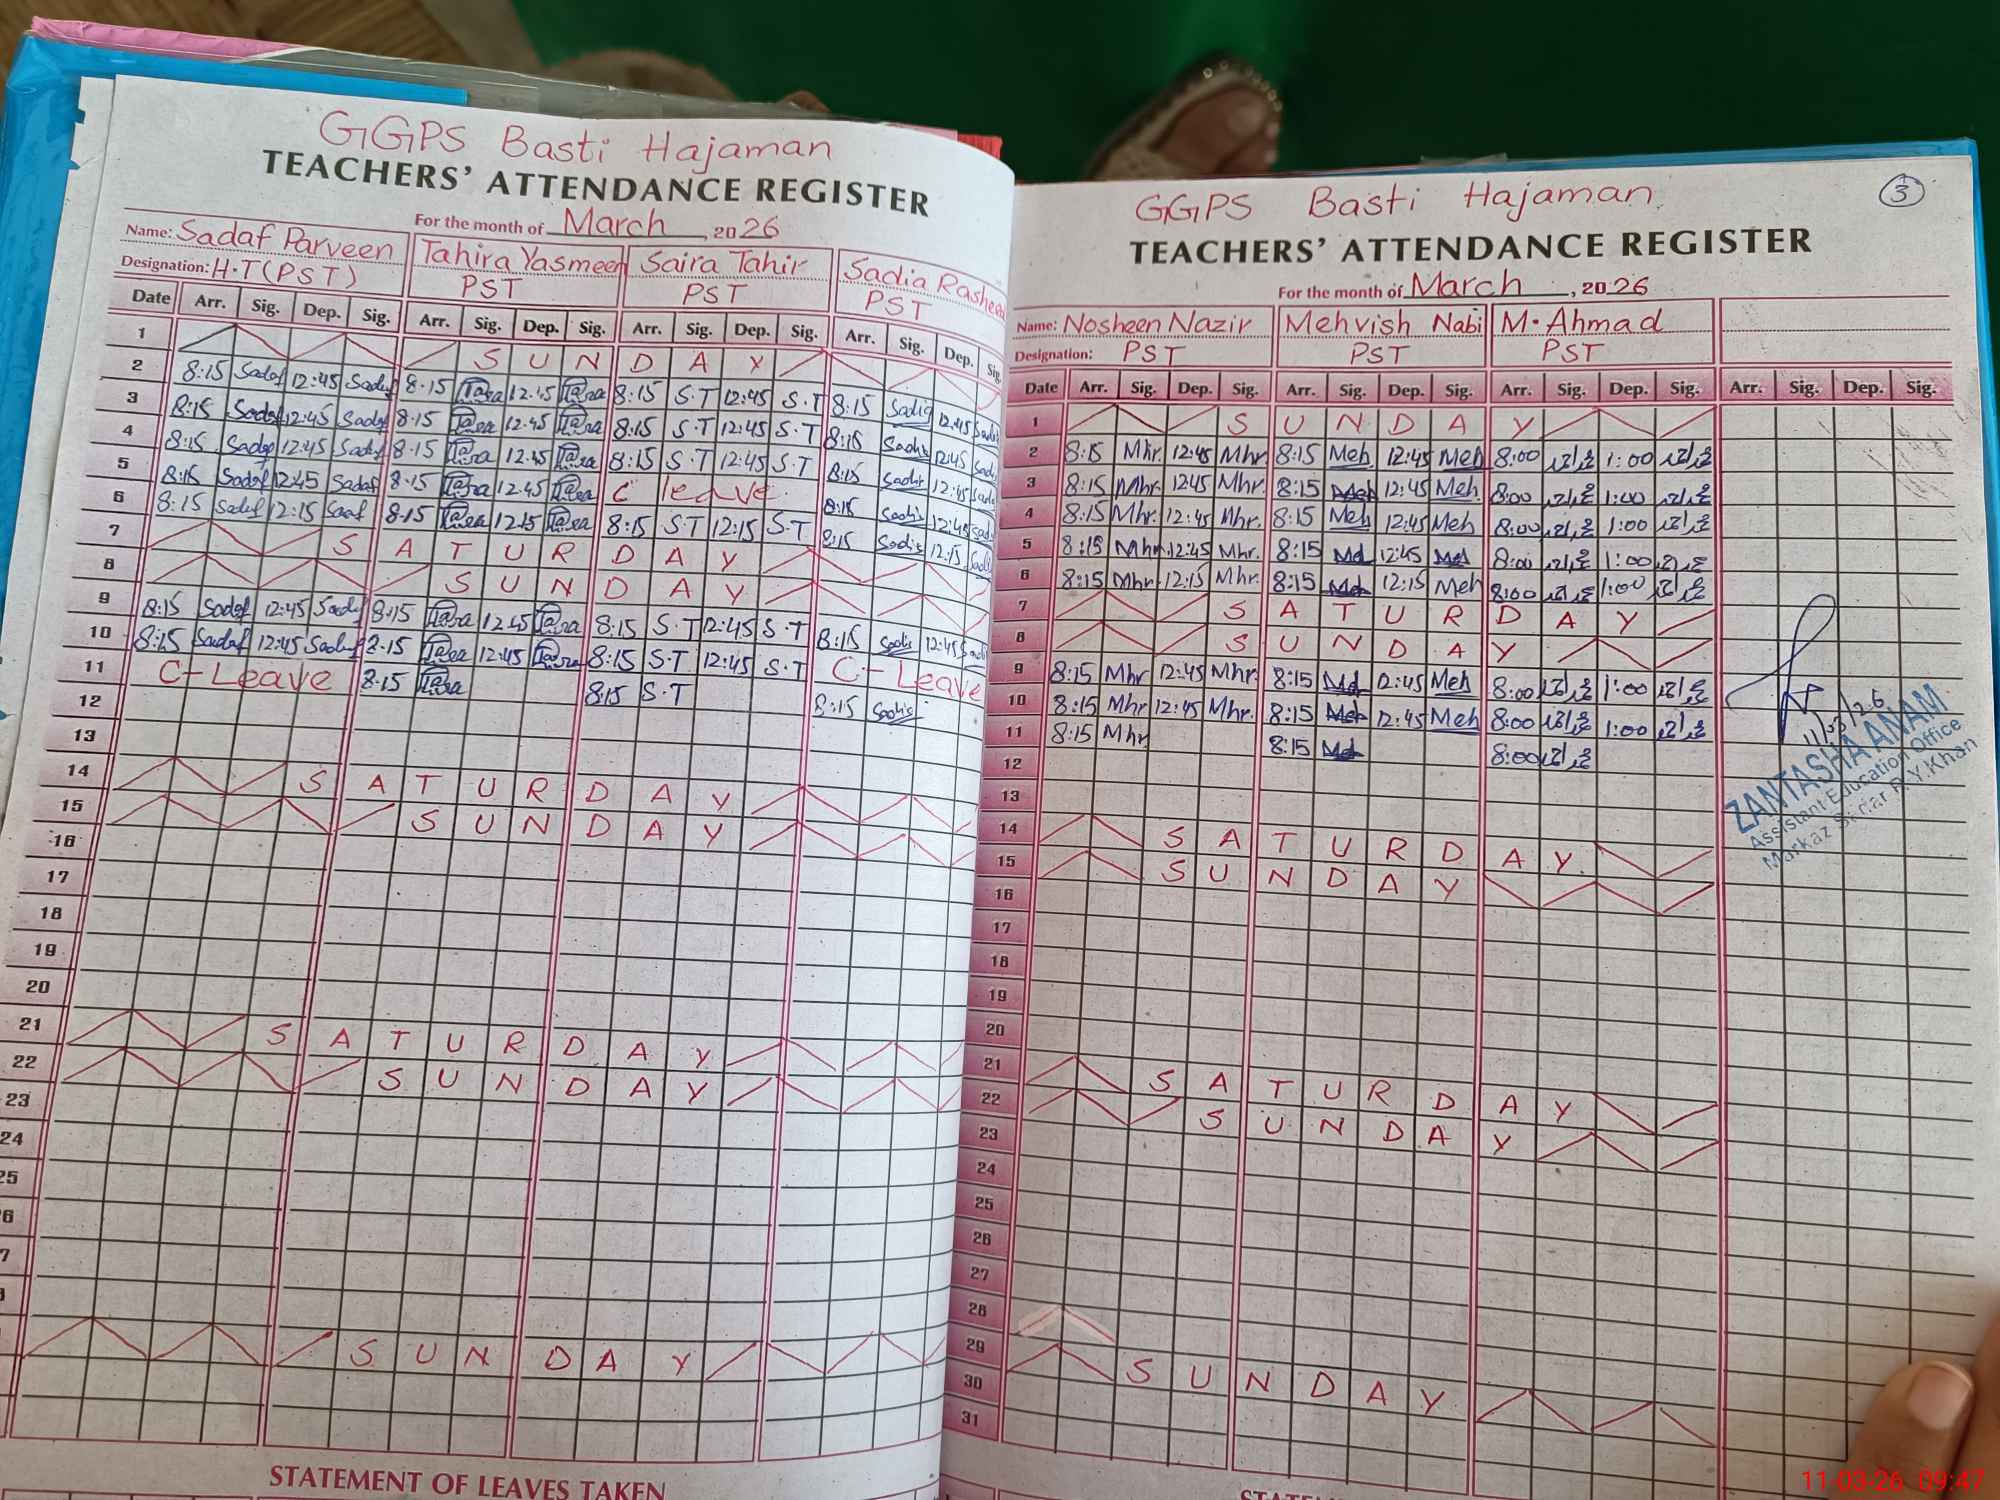 GGPS Basti Hajaman
TEACHERS' ATTENDANCE REGISTER
For the month of March, 2026
Name: Sadaf Parveen Tahira Yasmeen Saira Tahir Sadia Rasheed
Designation: H.T(PST) PST PST PST
Date Arr. Sig. Dep. Sig. Arr. Sig. Dep. Sig. Arr. Sig. Dep. Sig. Arr. Sig. Dep. Sig.
1 S U N D A Y
2 8:15 Sadaf 12:45 Sadaf 8:15 12:45 8:15 S.T 12:45 S.T 8:15 Sadia 12:45
3 8:15 Sadaf 12:45 Sadaf 8:15 12:45 8:15 S.T 12:45 S.T 8:15 Sadia 12:45
4 8:15 Sadaf 12:45 Sadaf 8:15 12:45 8:15 S.T 12:45 S.T 8:15 Sadia 12:45
5 8:15 Sadaf 12:45 Sadaf 8:15 12:45 C leave 8:15 Sadia 12:45
6 8:15 Sadaf 12:15 8:15 12:15 8:15 S.T 12:15 S.T 8:15 Sadia 12:15
7 S A T U R D A Y
8 S U N D A Y
9 8:15 Sadaf 12:45 Sadaf 8:15 12:45 8:15 S.T 12:45 S.T 8:15 Sadia 12:45
10 8:15 Sadaf 12:45 Sadaf 8:15 12:45 8:15 S.T 12:45 S.T C-Leave
11 C-Leave 8:15 8:15 S.T 8:15 Sadia
12
13
14 S A T U R D A Y
15 S U N D A Y
16
17
18
19
20
21 S A T U R D A Y
22 S U N D A Y
23
24
25
S U N D A Y
STATEMENT OF LEAVES TAKEN
GGPS Basti Hajaman
3
TEACHERS' ATTENDANCE REGISTER
For the month of March, 2026
Name: Nosheen Nazir Mehvish Nabi M. Ahmad
Designation: PST PST PST
Date Arr. Sig. Dep. Sig. Arr. Sig. Dep. Sig. Arr. Sig. Dep. Sig. Arr. Sig. Dep. Sig.
1 S U N D A Y
2 8:15 Mhr. 12:45 Mhr. 8:15 Meh 12:45 Meh 8:00 1:00
3 8:15 Mhr. 12:45 Mhr. 8:15 Meh 12:45 Meh 8:00 1:00
4 8:15 Mhr. 12:45 Mhr. 8:15 Meh 12:45 Meh 8:00 1:00
5 8:15 Mhr 12:45 Mhr. 8:15 Meh 12:45 Meh 8:00 1:00
6 8:15 Mhr. 12:15 Mhr. 8:15 Meh 12:15 Meh 8:00 1:00
7 S A T U R D A Y
8 S U N D A Y
9 8:15 Mhr 12:45 Mhr. 8:15 Meh 12:45 Meh 8:00 1:00
10 8:15 Mhr 12:45 Mhr. 8:15 Meh 12:45 Meh 8:00 1:00
11 8:15 Mhr 8:15 Meh 8:00
12
13
14 S A T U R D A Y
15 S U N D A Y
16
17
18
19
20
21 S A T U R D A Y
22 S U N D A Y
23
24
25
26
27
28
29 S U N D A Y
30
31
11/03/26
ZANTASHA ANAM
Assistant Education Office
Markaz Sardar R.Y.Khan
11-03-26 09:47